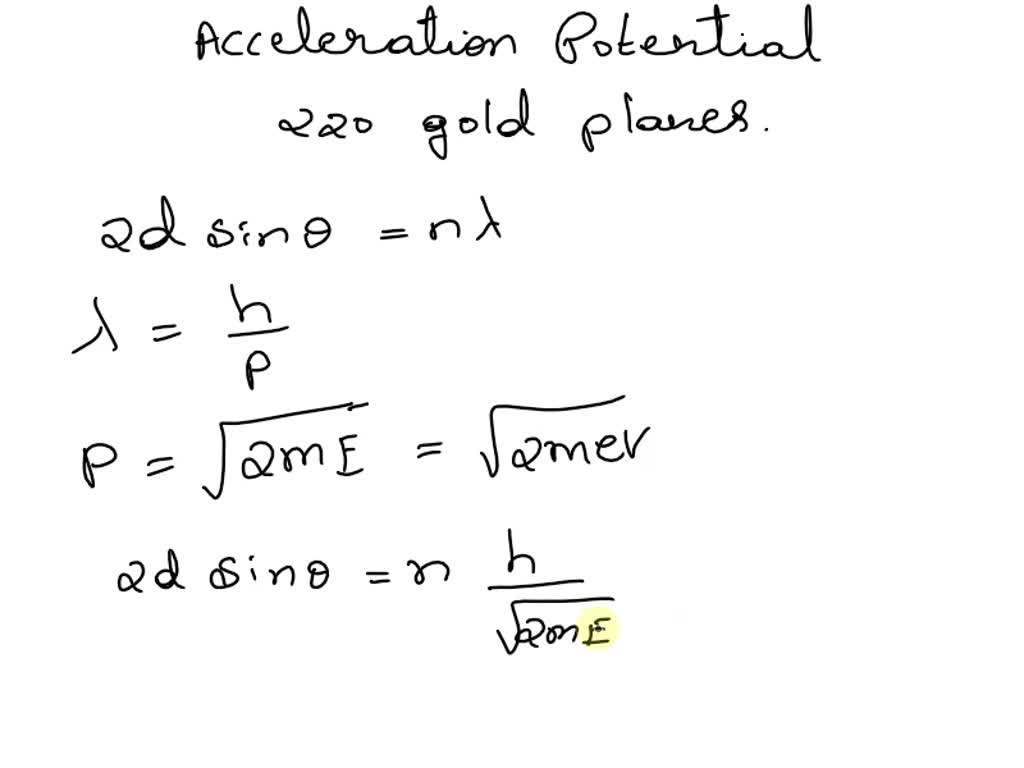 Acceleration Potential
220 gold planes.
2d sinθ = nλ
λ = h/P
P = √2mE = √2meV
2d sinθ = n h/√2mE